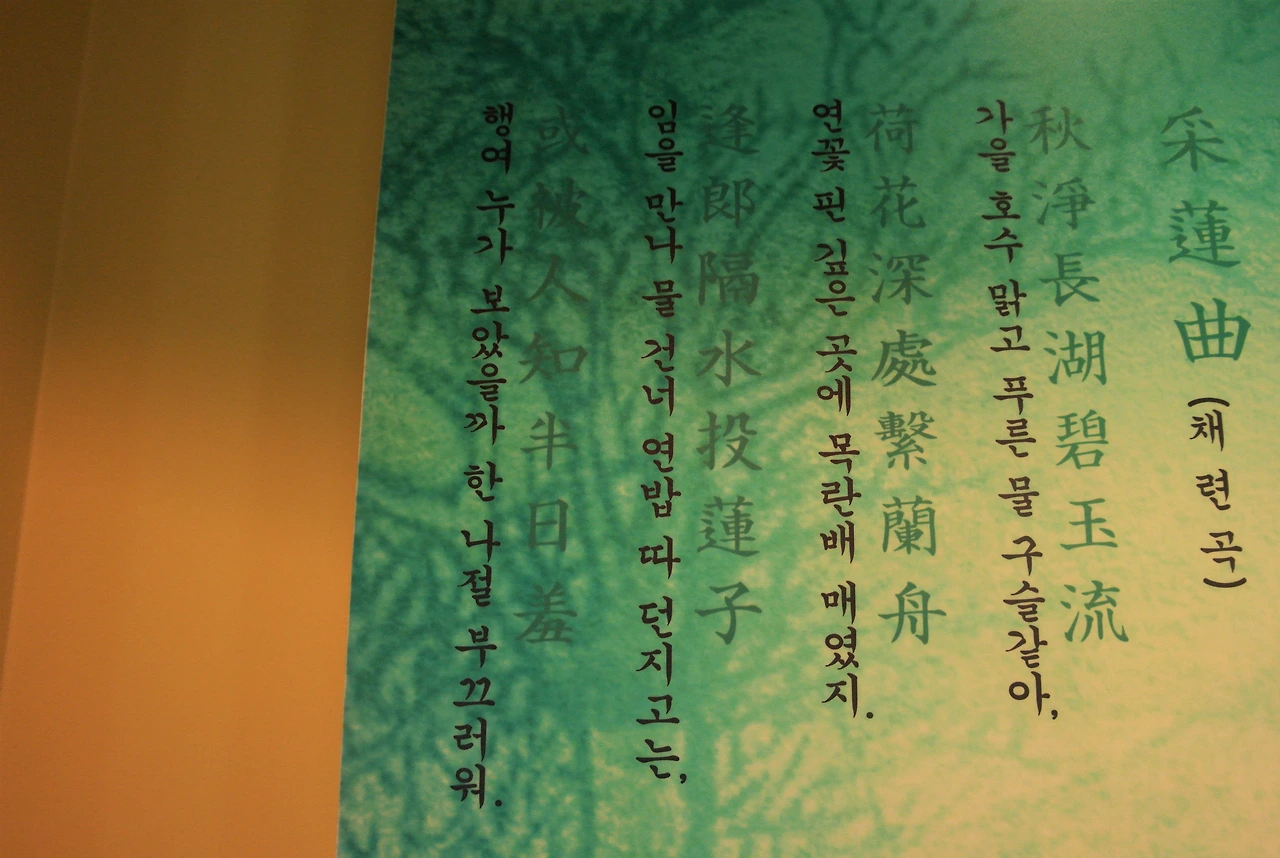 采蓮曲 (채련곡)
秋淨長湖碧玉流
가을 호수 맑고 푸른 물 구슬같아,
荷花深處繫蘭舟
연꽃 핀 깊은 곳에 목란배 매였지.
逢郎隔水投蓮子
임을 만나 물 건너 연밥 따 던지고는,
或被人知半日羞
행여 누가 보았을까 한 나절 부끄러워.